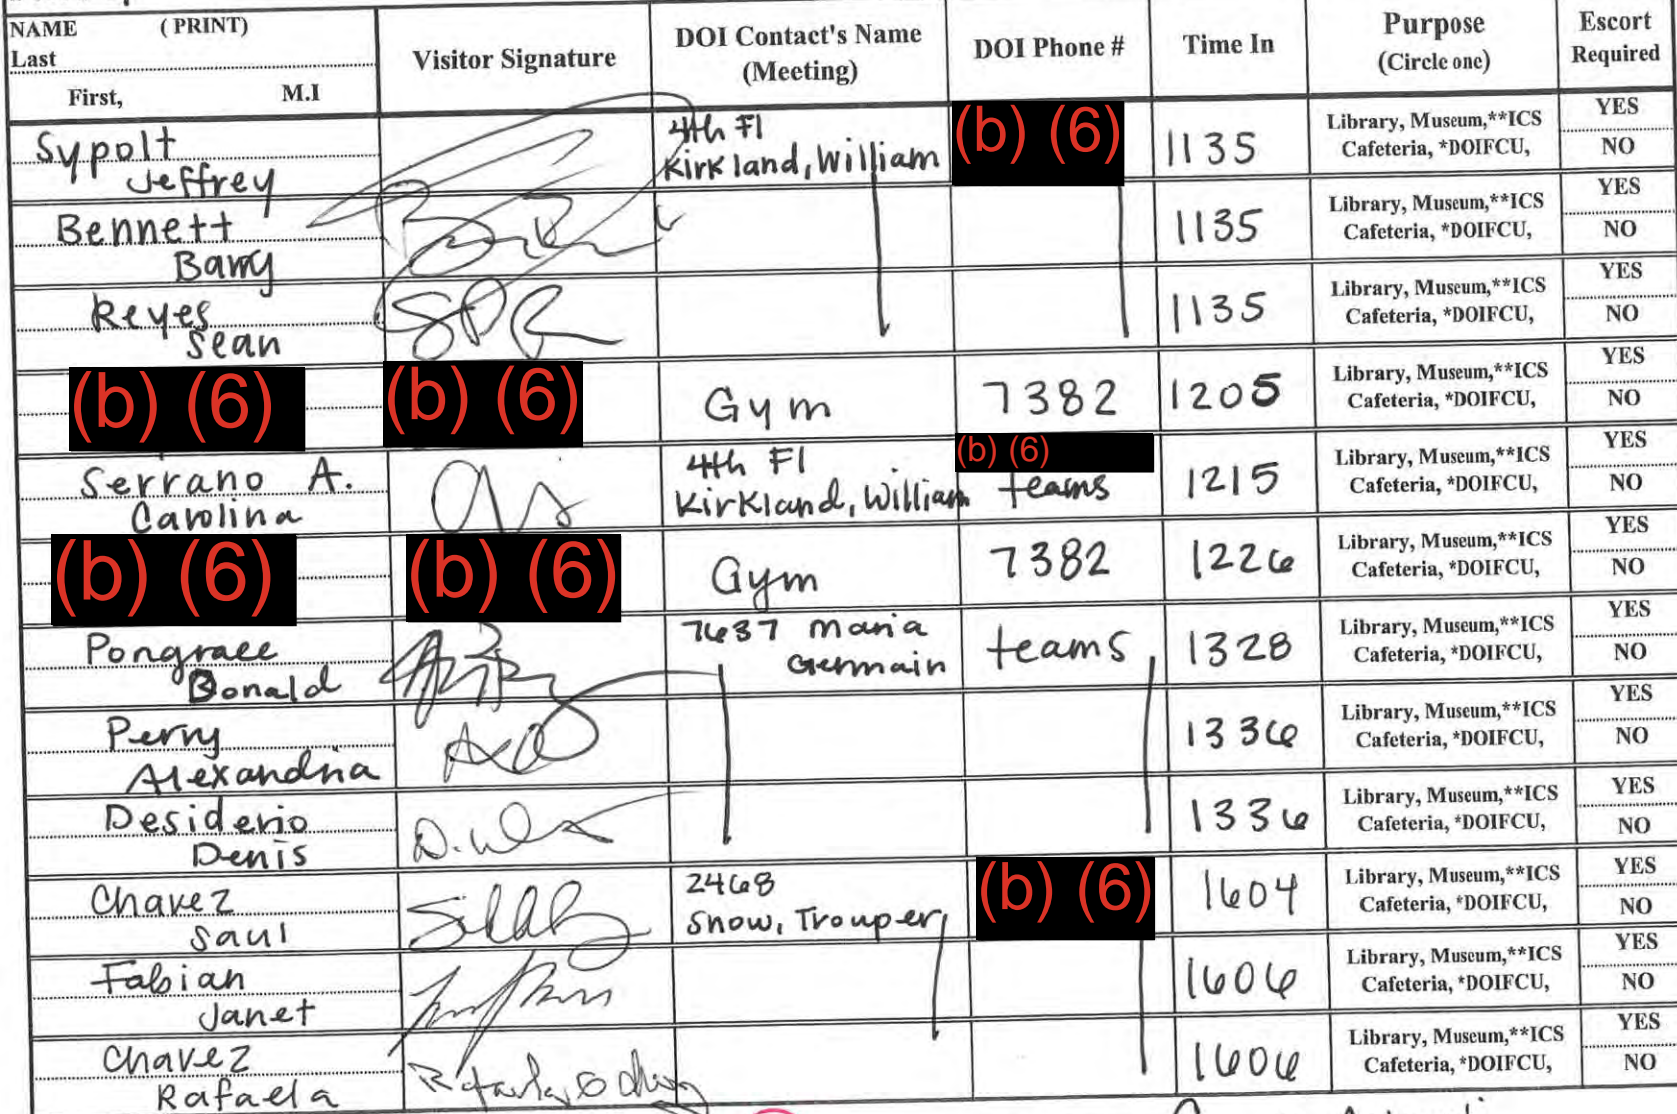 NAME ( PRINT)
Last
First, M.I
Visitor Signature
DOI Contact's Name
(Meeting)
DOI Phone #
Time In
Purpose
(Circle one)
Escort
Required
Sypolt
Jeffrey
4th Fl
Kirkland, William
(b) (6)
1135
Library, Museum,**ICS
Cafeteria, *DOIFCU,
YES
NO
Bennett
Barry
1135
Library, Museum,**ICS
Cafeteria, *DOIFCU,
YES
NO
Reyes
Sean
SPR
1135
Library, Museum,**ICS
Cafeteria, *DOIFCU,
YES
NO
(b) (6)
(b) (6)
Gym
7382
1205
Library, Museum,**ICS
Cafeteria, *DOIFCU,
YES
NO
Serrano A.
Carolina
4th Fl
Kirkland, William
(b) (6)
teams
1215
Library, Museum,**ICS
Cafeteria, *DOIFCU,
YES
NO
(b) (6)
(b) (6)
Gym
7382
1226
Library, Museum,**ICS
Cafeteria, *DOIFCU,
YES
NO
Pongrace
Donald
7637 Maria
Germain
teams
1328
Library, Museum,**ICS
Cafeteria, *DOIFCU,
YES
NO
Perry
Alexandria
1336
Library, Museum,**ICS
Cafeteria, *DOIFCU,
YES
NO
Desiderio
Denis
1336
Library, Museum,**ICS
Cafeteria, *DOIFCU,
YES
NO
Chavez
Saul
2468
Snow, Trouper
(b) (6)
1604
Library, Museum,**ICS
Cafeteria, *DOIFCU,
YES
NO
Fabian
Janet
1606
Library, Museum,**ICS
Cafeteria, *DOIFCU,
YES
NO
Chavez
Rafaela
1606
Library, Museum,**ICS
Cafeteria, *DOIFCU,
YES
NO